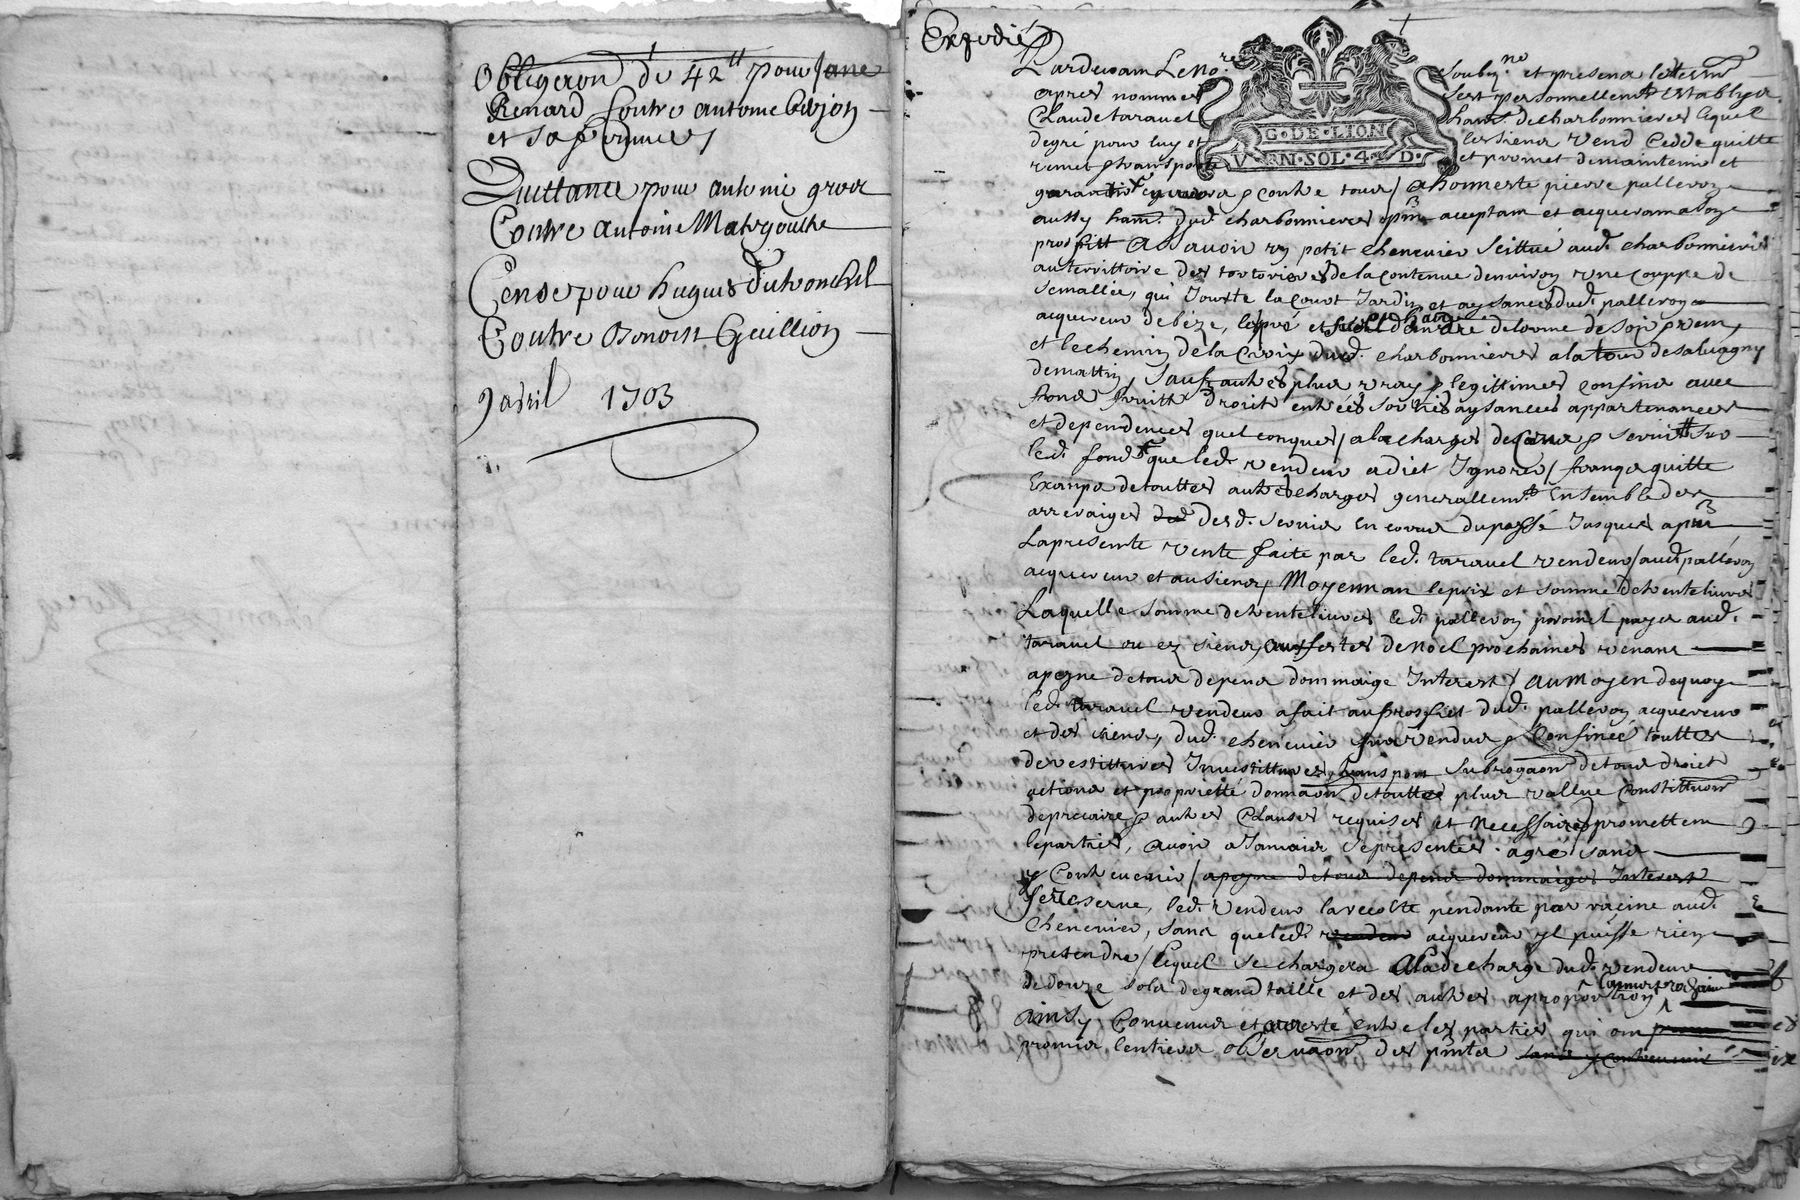 Obligãon de 42ᵗᵗ pour
Renard Contre antoine
et sa femme
Quittance pour antoine
Contre antoine
Cense pour hugues Dutroncil
Contre Benoist Guillion
9 avril 1703
Expedié
Pardevant Le Noʳᵉ soubz.ⁿᵉ et presens les tesm̃
apres nommes sest personnellemᵗ establye
Claude taravel hañt de charbonnieres lequel
degré pour luy et les siens vend cedde quitte
remet & transporte et promet demaintenir et
garantir envers & contre tous / a honneste pierre palleron
aussy hañt. dud. charbonnieres acceptant et acquerant a son
proffitt Assavoir un petit chenevier scittué aud. charbonnieres
au territtoire des de la contenue denviron une couppe de
semallie, qui Jouxte la Court Jardin et aysances dud. palleron
acquereur de bize, le pré et de lorme de soir & vent,
et le chemin de la Croix dud. charbonnieres a la tour de salvagny
de mattin, sauf autres plus vray & legittimes confins avec
fond fruitt droict entrées sorties aysances appartenances
et dependences quelconques / a la charge de Cens & servis sur
led. fond que led. vendeur a dict Ignorer / franq & quitte
Exampt de touttes autres charges generallemᵗ Ensemble des
arreraiges desd. servis En cours du passé Jusques a
La presente vente faite par led. taravel vendeur / aud. palleron
acquereur et au siens, Moyennant le prix et somme de trente livres
Laquelle somme de trente livres led. palleron promet payer aud.
taravel ou ez siens, aux festes de Noel prochaines venant
a peyne de tous depens dommaige Interest / Au Moyen dequoy
led. taravel vendeur a fait au proffict dud. palleron acquereur
et des siens, dud. chenevier sus vendus & Confiné touttes
devestittures Investittures, transport subrogãon de tous droict
actions et propriette donnãon de touttes plus vallue Constittuon
de precaire & autres Clauses requises et Necessaires promettent
les parties, avoir a Jamais ses presentes agré sans
y Contrevenir / a peyne de tous depens dommaiges Interest
se reserve, led. vendeur la recolte pendante par racine aud.
Chenevier, sans que led. vendeur acquereur yl puisse rien
pretendre / lequel se chargera A la decharge dud. vendeur
de douze sols de grand taille et des autres a proportion
Ainsy Convenus et arresté entre les parties qui ont
promis lentiere observãon des pñtes sans y contrevenir
G·DE·LION
V·RN·SOL·4·D·